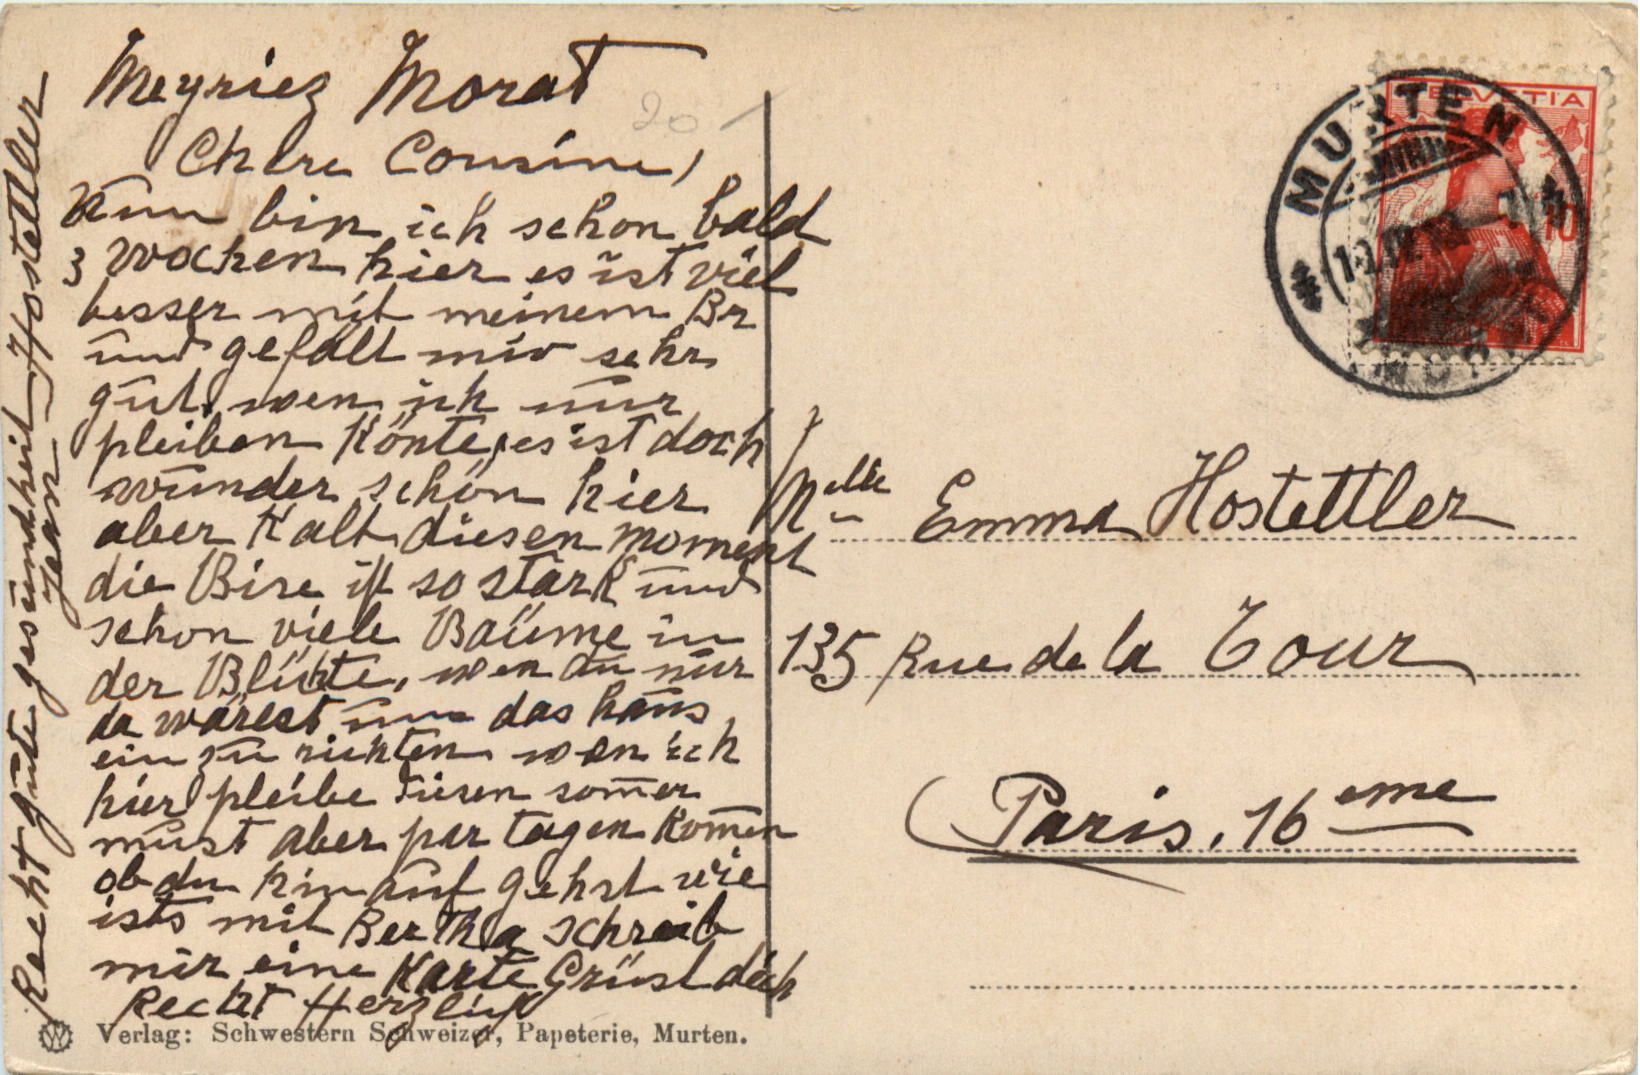 Meyriez Morat
20
Chere Cousine,
Nun bin ich schon bald
3 wochen hier es ist viel
besser mit meinem Br
und gefält mir sehr
gut, wen ich nur
pleiben könte, es ist doch
wunder schön hier
aber Kalt diesen moment
die Bise ist so stark und
schon viele Bäume in
der Blühte, wen du nur
da wärest um das haus
ein zu richten wen ich
hier pleibe diesen som̄er
must aber par tagen Kom̄en
ob du hinauf gehst wie
ists mit Bertha schreib
mir eine Karte Grüst dich
Recht Herzlich
Recht gute gesundheit Hostettler
Jean
Verlag: Schwestern Schweizer, Papeterie, Murten.
HELVETIA
10
MURTEN
Melle Emma Hostettler
135 Rue de la Tour
Paris, 16eme